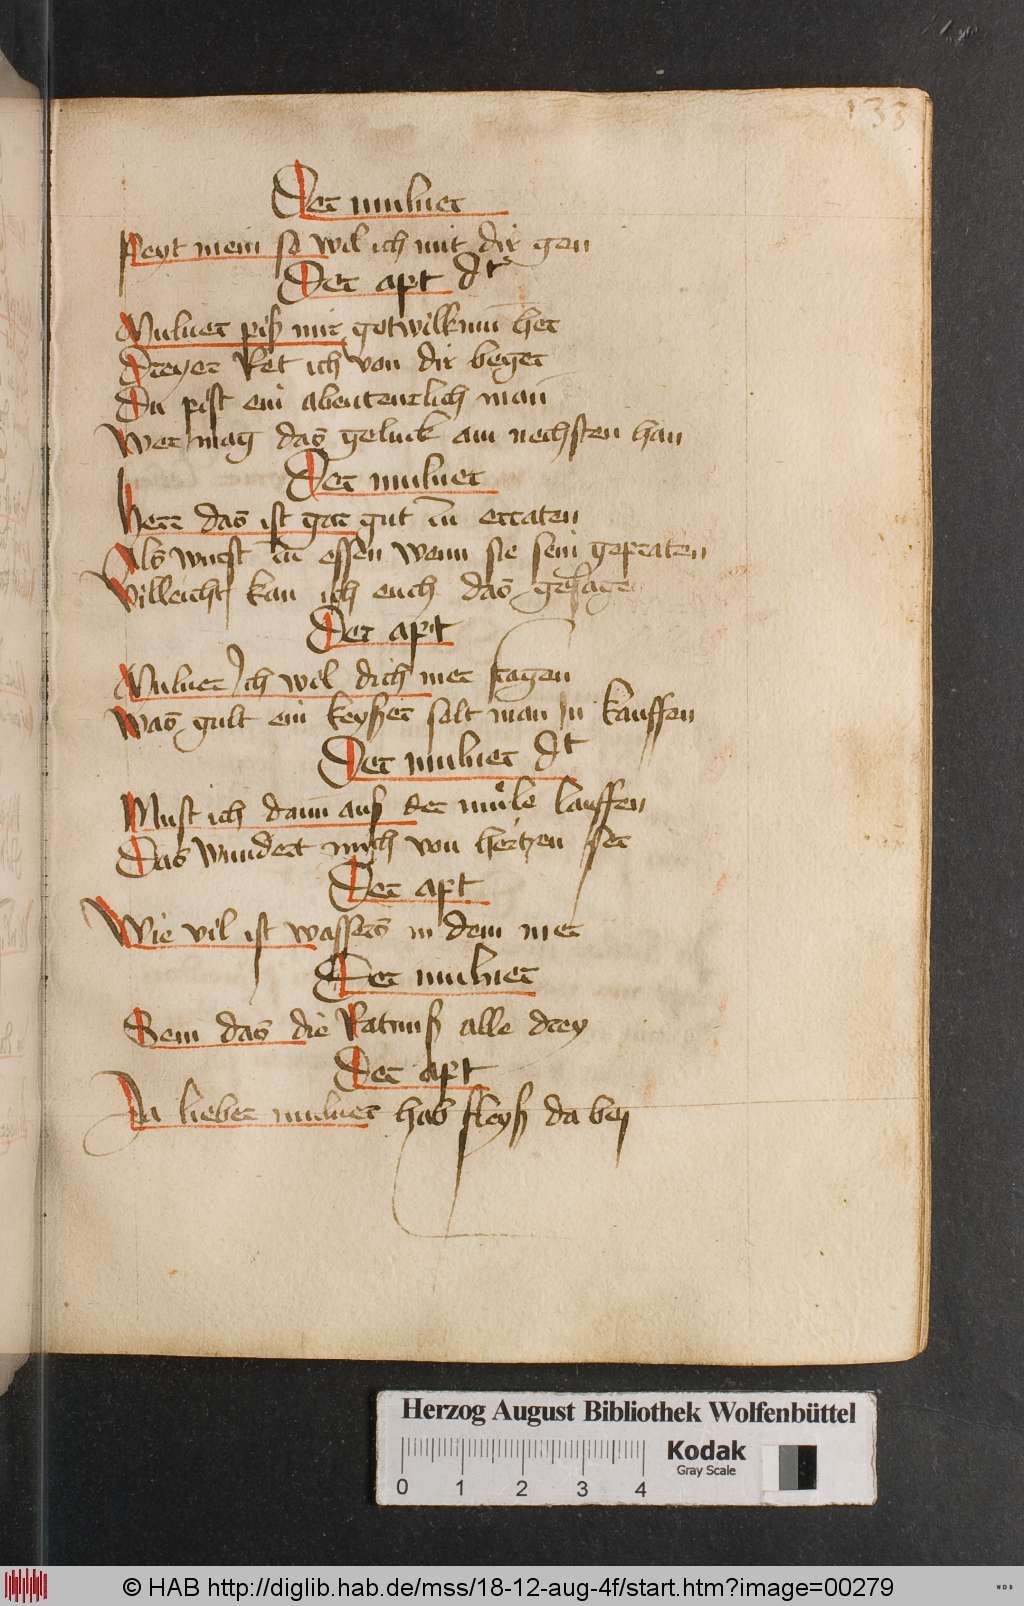 133
Der mulner
Peyt mein so wil ich mit dir gen
Der apt dt
Mulner piß mir gotwilkum her
Dreyer Ret ich von dir beger
Du pist ein abenteurlich man
Wer mag das geluck am nechsten han
Der mulner
Herr das ist gar gut zu erraten
Als wurst zu essen wenn sie sein gepraten
Villeicht kan ich euch das gesage
Der apt
Mulner Ich wil dich mer fragen
Was gult ein keyser solt man in kauffen
Der mulner dt
Must ich dann auß der mule lauffen
Das wundert mich von hertzen ser
Der apt
Wie vil ist wassers in dem mer
Der mulner
Sein das die Ratnuß alle drey
Der apt
Ja lieber mulner hab fleyß da bey
Herzog August Bibliothek Wolfenbüttel
Kodak
Gray Scale
0 1 2 3 4
© HAB http://diglib.hab.de/mss/18-12-aug-4f/start.htm?image=00279